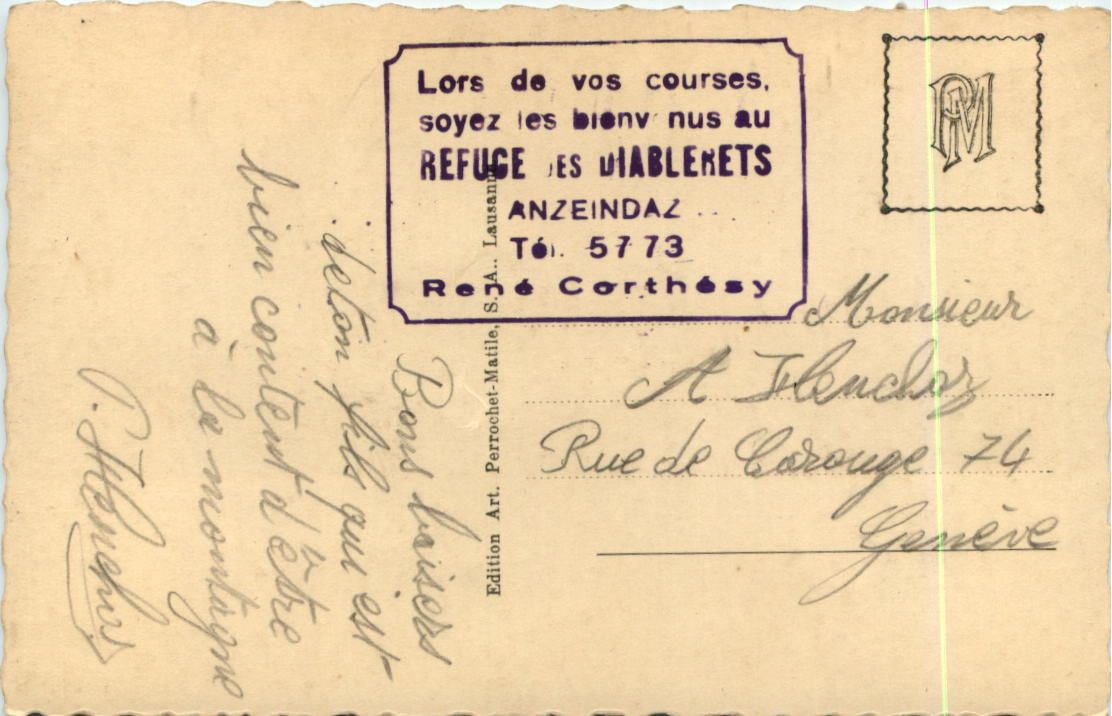 Lors de vos courses,
soyez les bienv nus au
REFUGE DES DIABLERETS
ANZEINDAZ
Tél. 5773
René Corthésy
PM
Edition Art. Perrochet-Matile, S. A.. Lausanne
Bons baisers
de ton fils qui est
bien content d'être
à la montagne
Monsieur
A
Rue de Carouge 74
Genève